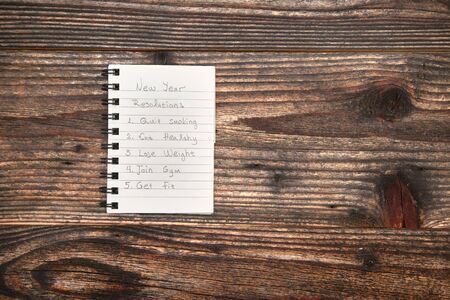 New Year
Resolutions
1. Quit smoking
2. Eat Healthy
3. Lose Weight
4. Join Gym
5. Get fit